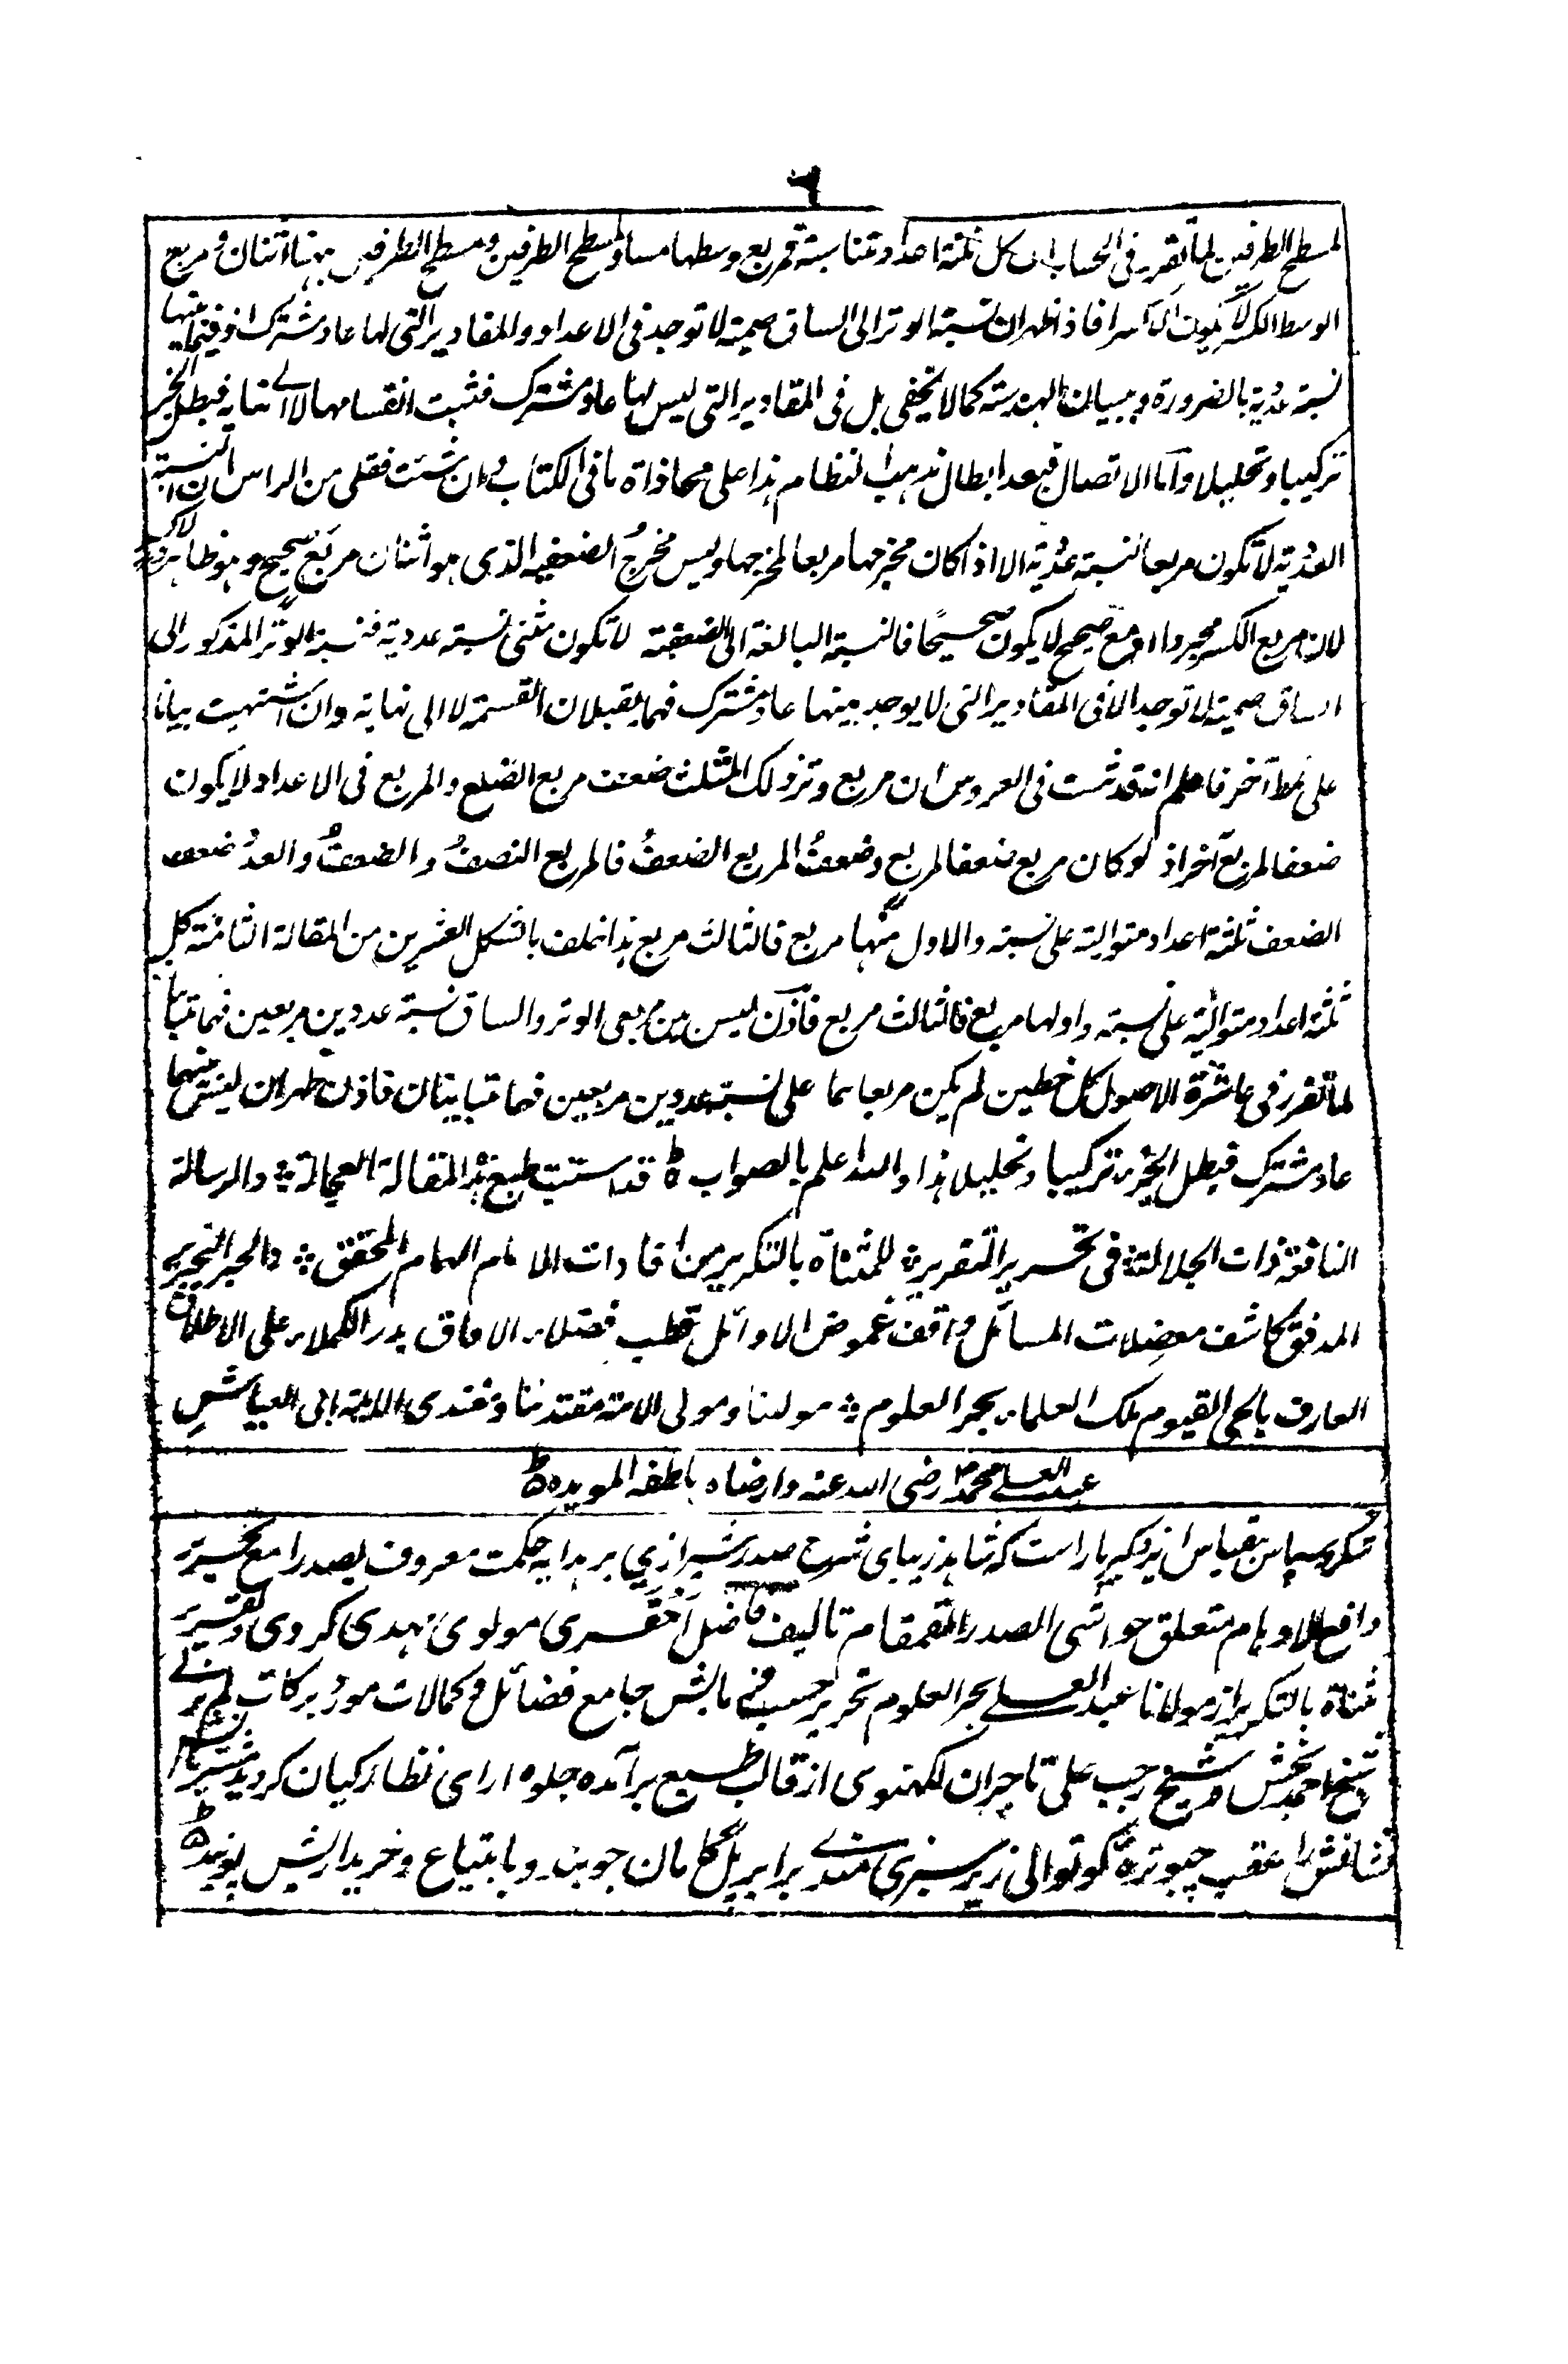 ٦
لمسطح الطرفين لما تقرر فی الحساب ان کل ثلثة اعداد متناسبة فمربع وسطها مساو لمسطح الطرفین و مسطح الطرفین ههنا اثنان و مربع
الوسط الکسر لا یکون الا کسرا فاذن ظهر ان نسبة الوتر الی الساق صمیة لا توجد فی الاعداد و المقادیر التی لها عاد مشترک اذ فیما بینها
نسبة عددیة بالضرورة و ببیان الهندسة کما لا یخفی بل فی المقادیر التی لیس لها عاد مشترک فثبت انقسامها لا الی نهایة فبطل الجزء
ترکیبا و تحلیلا و اما الاتصال فبعد ابطال مذهب النظام هذا علی محاذاة ما فی الکتاب و ان شئت فقل من الراس ان النسبة
العددیة لا تکون مربعا لنسبة عددیة الا اذا کان مخرجها مربعا لمخرجها و لیس مخرج الضعفیة الذی هو اثنان مربع صحیح و هو ظاهر و لا کسر
لان مربع الکسر مجردا او مع صحیح لا یکون صحیحا فالنسبة البالغة الی الضعفیة لا تکون مثنی نسبة عددیة فنسبة الوتر المذکور الی
الساق صمیة لا توجد الا فی المقادیر التی لا یوجد بینها عاد مشترک فهما یقبلان القسمة لا الی نهایة و ان اشتهیت بیانا
علی نمط آخر فاعلم انه قد ثبت فی العروس ان مربع وتر ذلک المثلث ضعف مربع الضلع و المربع فی الاعداد لا یکون
ضعفا لمربع آخر اذ لو کان مربع ضعفا لمربع و ضعف المربع الضعف فالمربع النصف و الضعف و العدد ضعف
الضعف ثلثة اعداد متوالیة علی نسبة و الاول منها مربع فالثالث مربع هذا خلف بالشکل العشرین من المقالة الثامنة کل
ثلثة اعداد متوالیة علی نسبة و اولها مربع فالثالث مربع فاذن لیس بین مربعی الوتر و الساق نسبة عددین مربعین فهما متباینان
لما تقرر فی عاشرة الاصول کل خطین لم یکن مربعاهما علی نسبة عددین مربعین فهما متباینان فاذن ظهر ان لیس بینهما
عاد مشترک فبطل الجزء ترکیبا و تحلیلا هذا و الله اعلم بالصواب قد استتب طبع هذه المقالة العجالة و الرسالة
النافعة ذات الجلالة فی تحریر التقریر للمثناة بالتکریر من افادات الامام الهمام المحقق و الحبر النحریر
المدقق کاشف معضلات المسائل واقف غموض الاوائل قطب فضلاء الافاق بدر الکملاء علی الاطلاق
العارف بالحی القیوم ملک العلماء بحر العلوم مولنا و مولی الامة مقتدنا و مقتدی الائمة ابی العیاش
عبد العلے محمد رضی الله عنه و ارضاه بلطفه المویده
شکر و سپاس بیقیاس ایزد کبریا راست که شاهد زیبای شرح صدر شیرازی بر هدایه حکمت معروف بصدرا مع تحریر
دافع الاوهام متعلق حواشی الصدر القمقام تالیف فاضل احقری مولوی مهدی کردی و تقریر
مثناة بالتکریر از مولانا عبد العلے بحر العلوم تحریر حسب فرمایش جامع فضائل و کمالات مورد برکات لم یزلے
شیخ احمد بخش و شیخ رجب علی تاجران لکهنوی از قالب طبع برآمده جلوه ارای نظارکیان کردید مشتریان
نشانش عقب چبوتره کوتوالی زیر سبزی مندے برابر پل کلان جویند و بابتیاع و خریداریش پویند